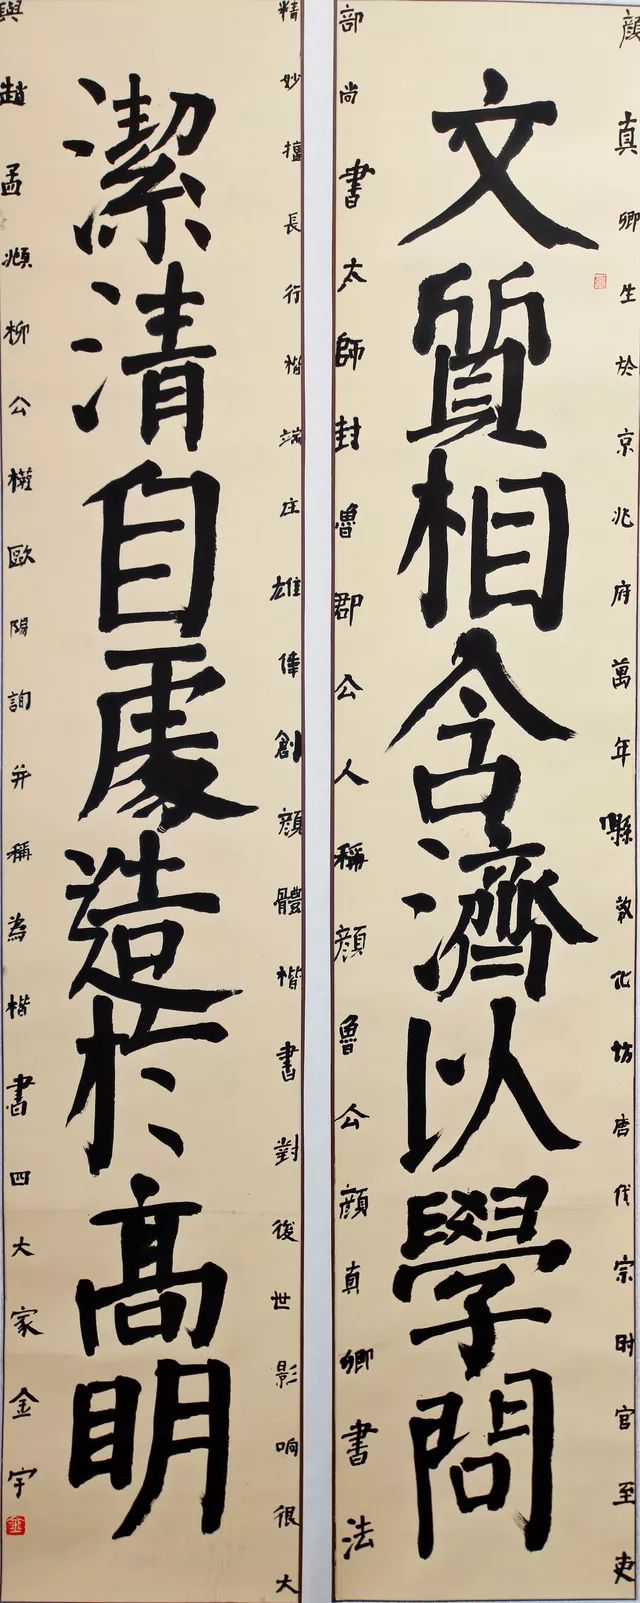 顏真卿生於京兆府萬年縣敦化坊唐代宗时官至吏
文質相含濟以學問
部尚書太師封魯郡公人稱顏魯公顏真卿書法
精妙擅長行楷端庄雄偉創顏體楷書對後世影响很大
潔清自處造於高明
與趙孟頫柳公權歐陽詢并稱為楷書四大家金宇